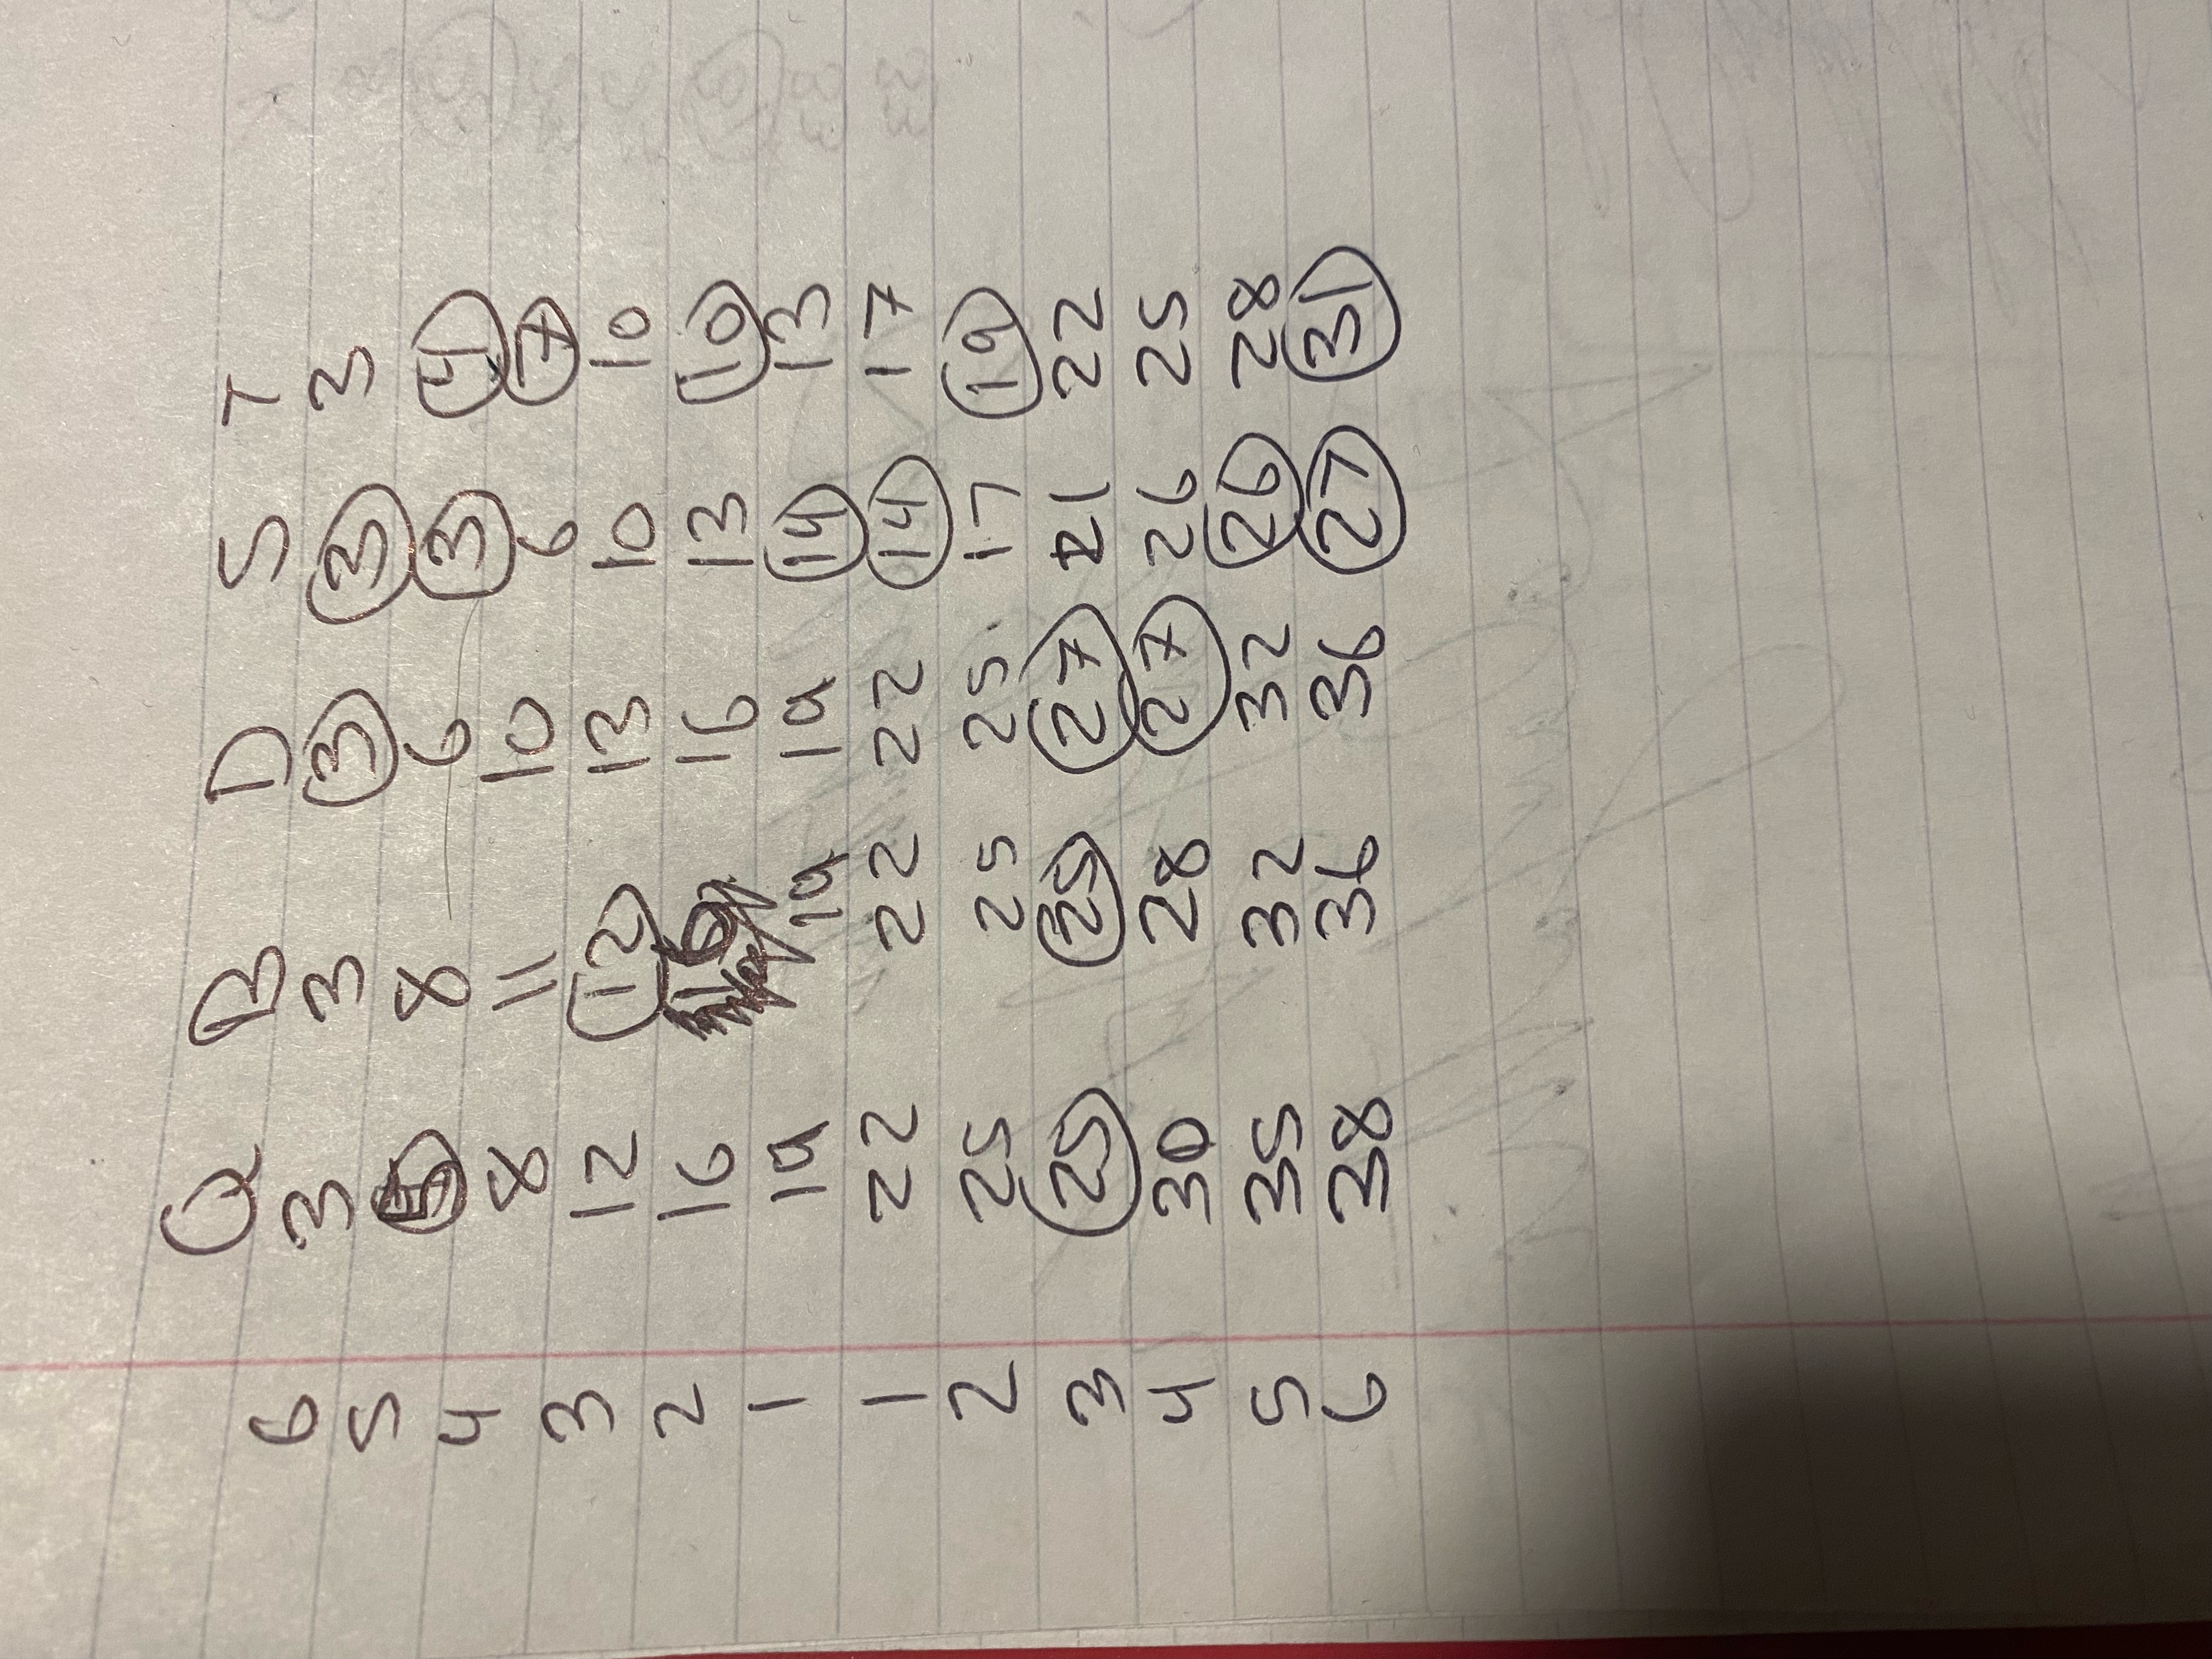 Q B D S T
6 3 3 3 3 3
5 5 8 6 3 4
4 8 11 10 6 7
3 12 12 13 10 10
2 16 16 16 13 10
1 19 19 19 14 13
1 22 22 22 14 17
2 25 25 25 17 19
3 25 25 27 21 22
4 30 28 27 26 25
5 35 32 32 26 28
6 38 36 36 27 31